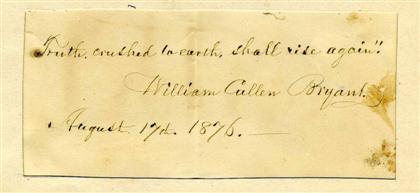 "Truth, crushed to earth, shall rise again".
William Cullen Bryant.
August 17th. 1876.